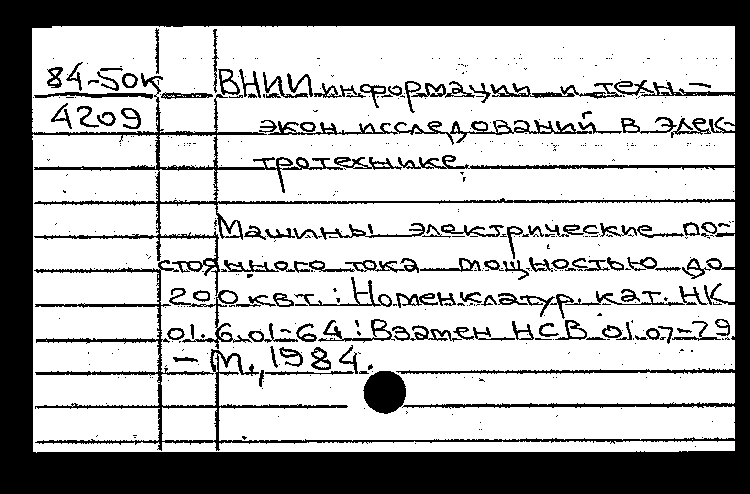 84-50к ВНИИ информации и техн.-
4209 экон. исследований в элек-
тротехнике.
Машины электрические по-
стоянного тока мощностью до
200 квт. : Номенклатур. кат. НК
01.6.01-64 : Взамен НСВ 01.07-79
- М., 1984.